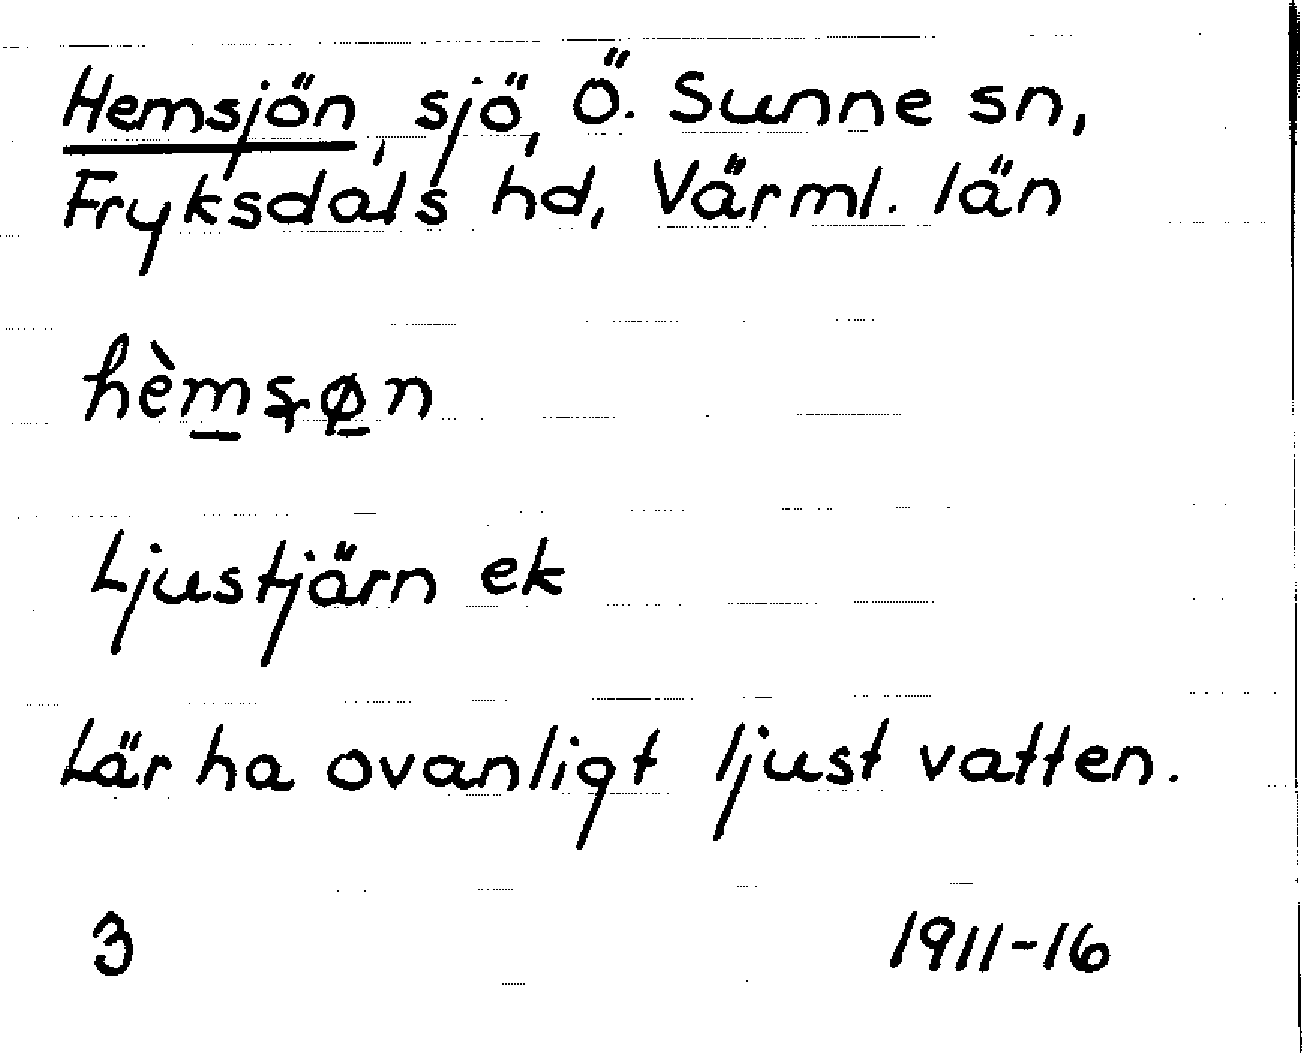 Hemsjön, sjö, Ö. Sunne sn,
Fryksdals hd, Värml. län
hèm̲sø̲n
Ljustjärn ek
Lär ha ovanligt ljust vatten.
3 1911-16